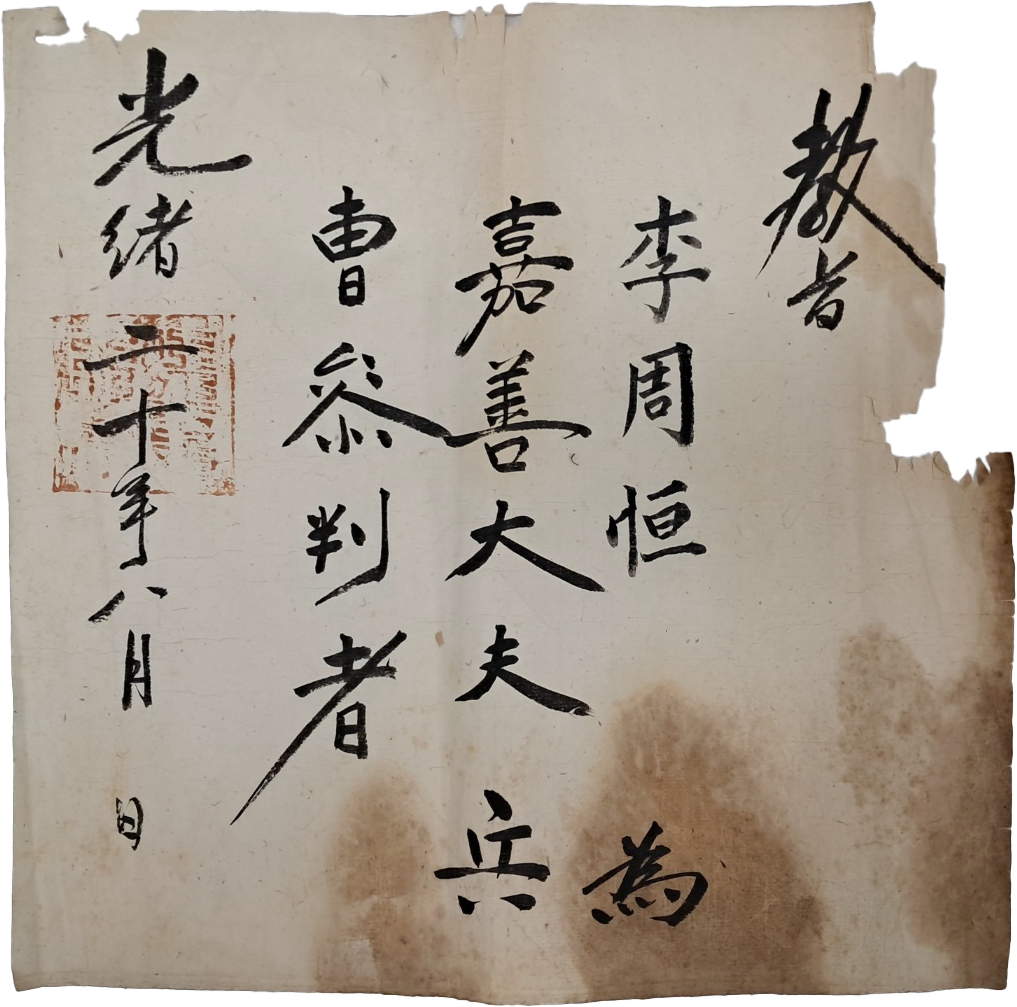 教旨
李周恒為
嘉善大夫兵
曺叅判者
光緒二十年八月 日